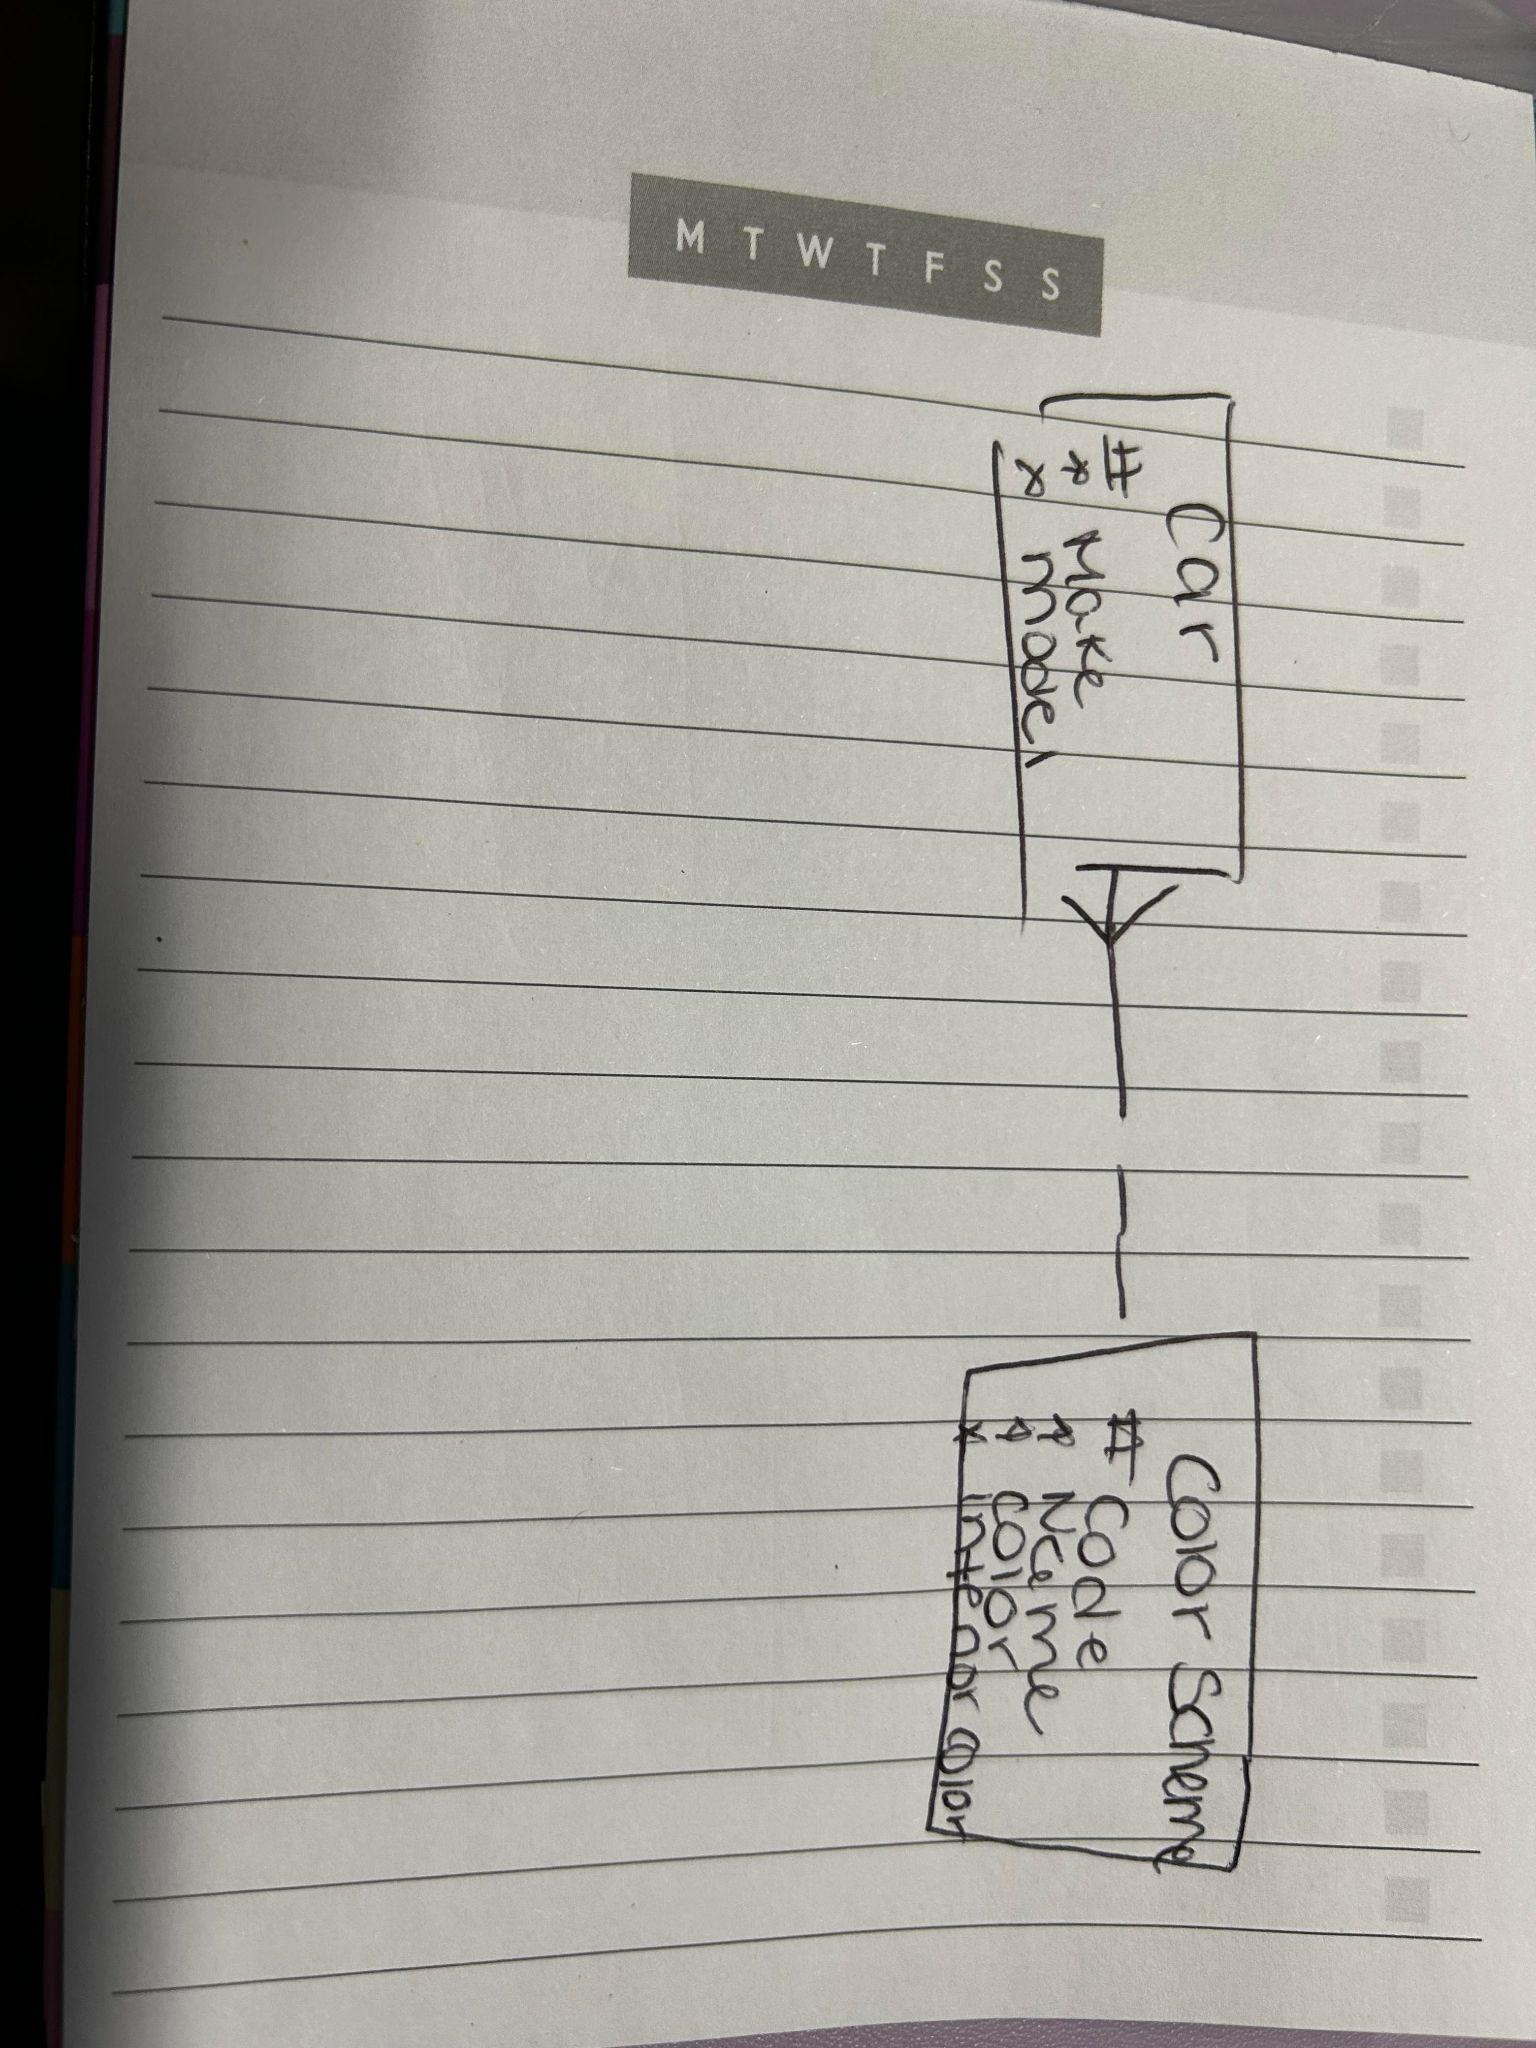 M T W T F S S
Car
#
* Make
* Model
Color Scheme
# Code
* Name
* Color
* interior color